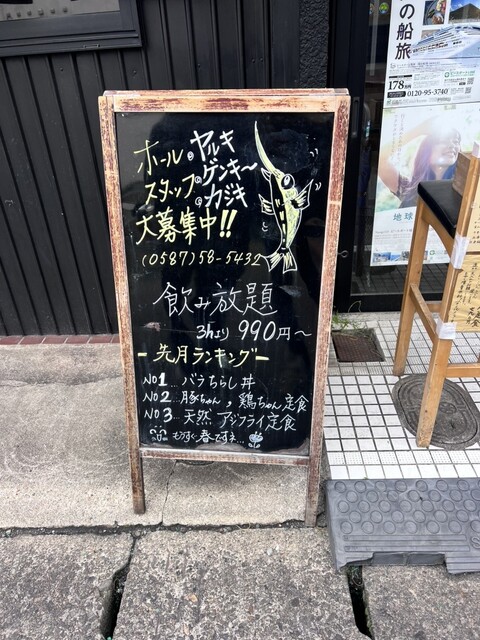 ホール ◎ヤルキ
スタッフ ◎ゲンキ〜
◎カジキ
大募集中!!
(0587)58-5432
飲み放題
3hより 990円〜
- 先月ランキング -
No1... バラちらし丼
No2... 豚ちゃん, 鶏ちゃん定食
No3... 天然 アジフライ定食
もうすぐ春ですネ...
の船旅
178
0120-95-3740
地球